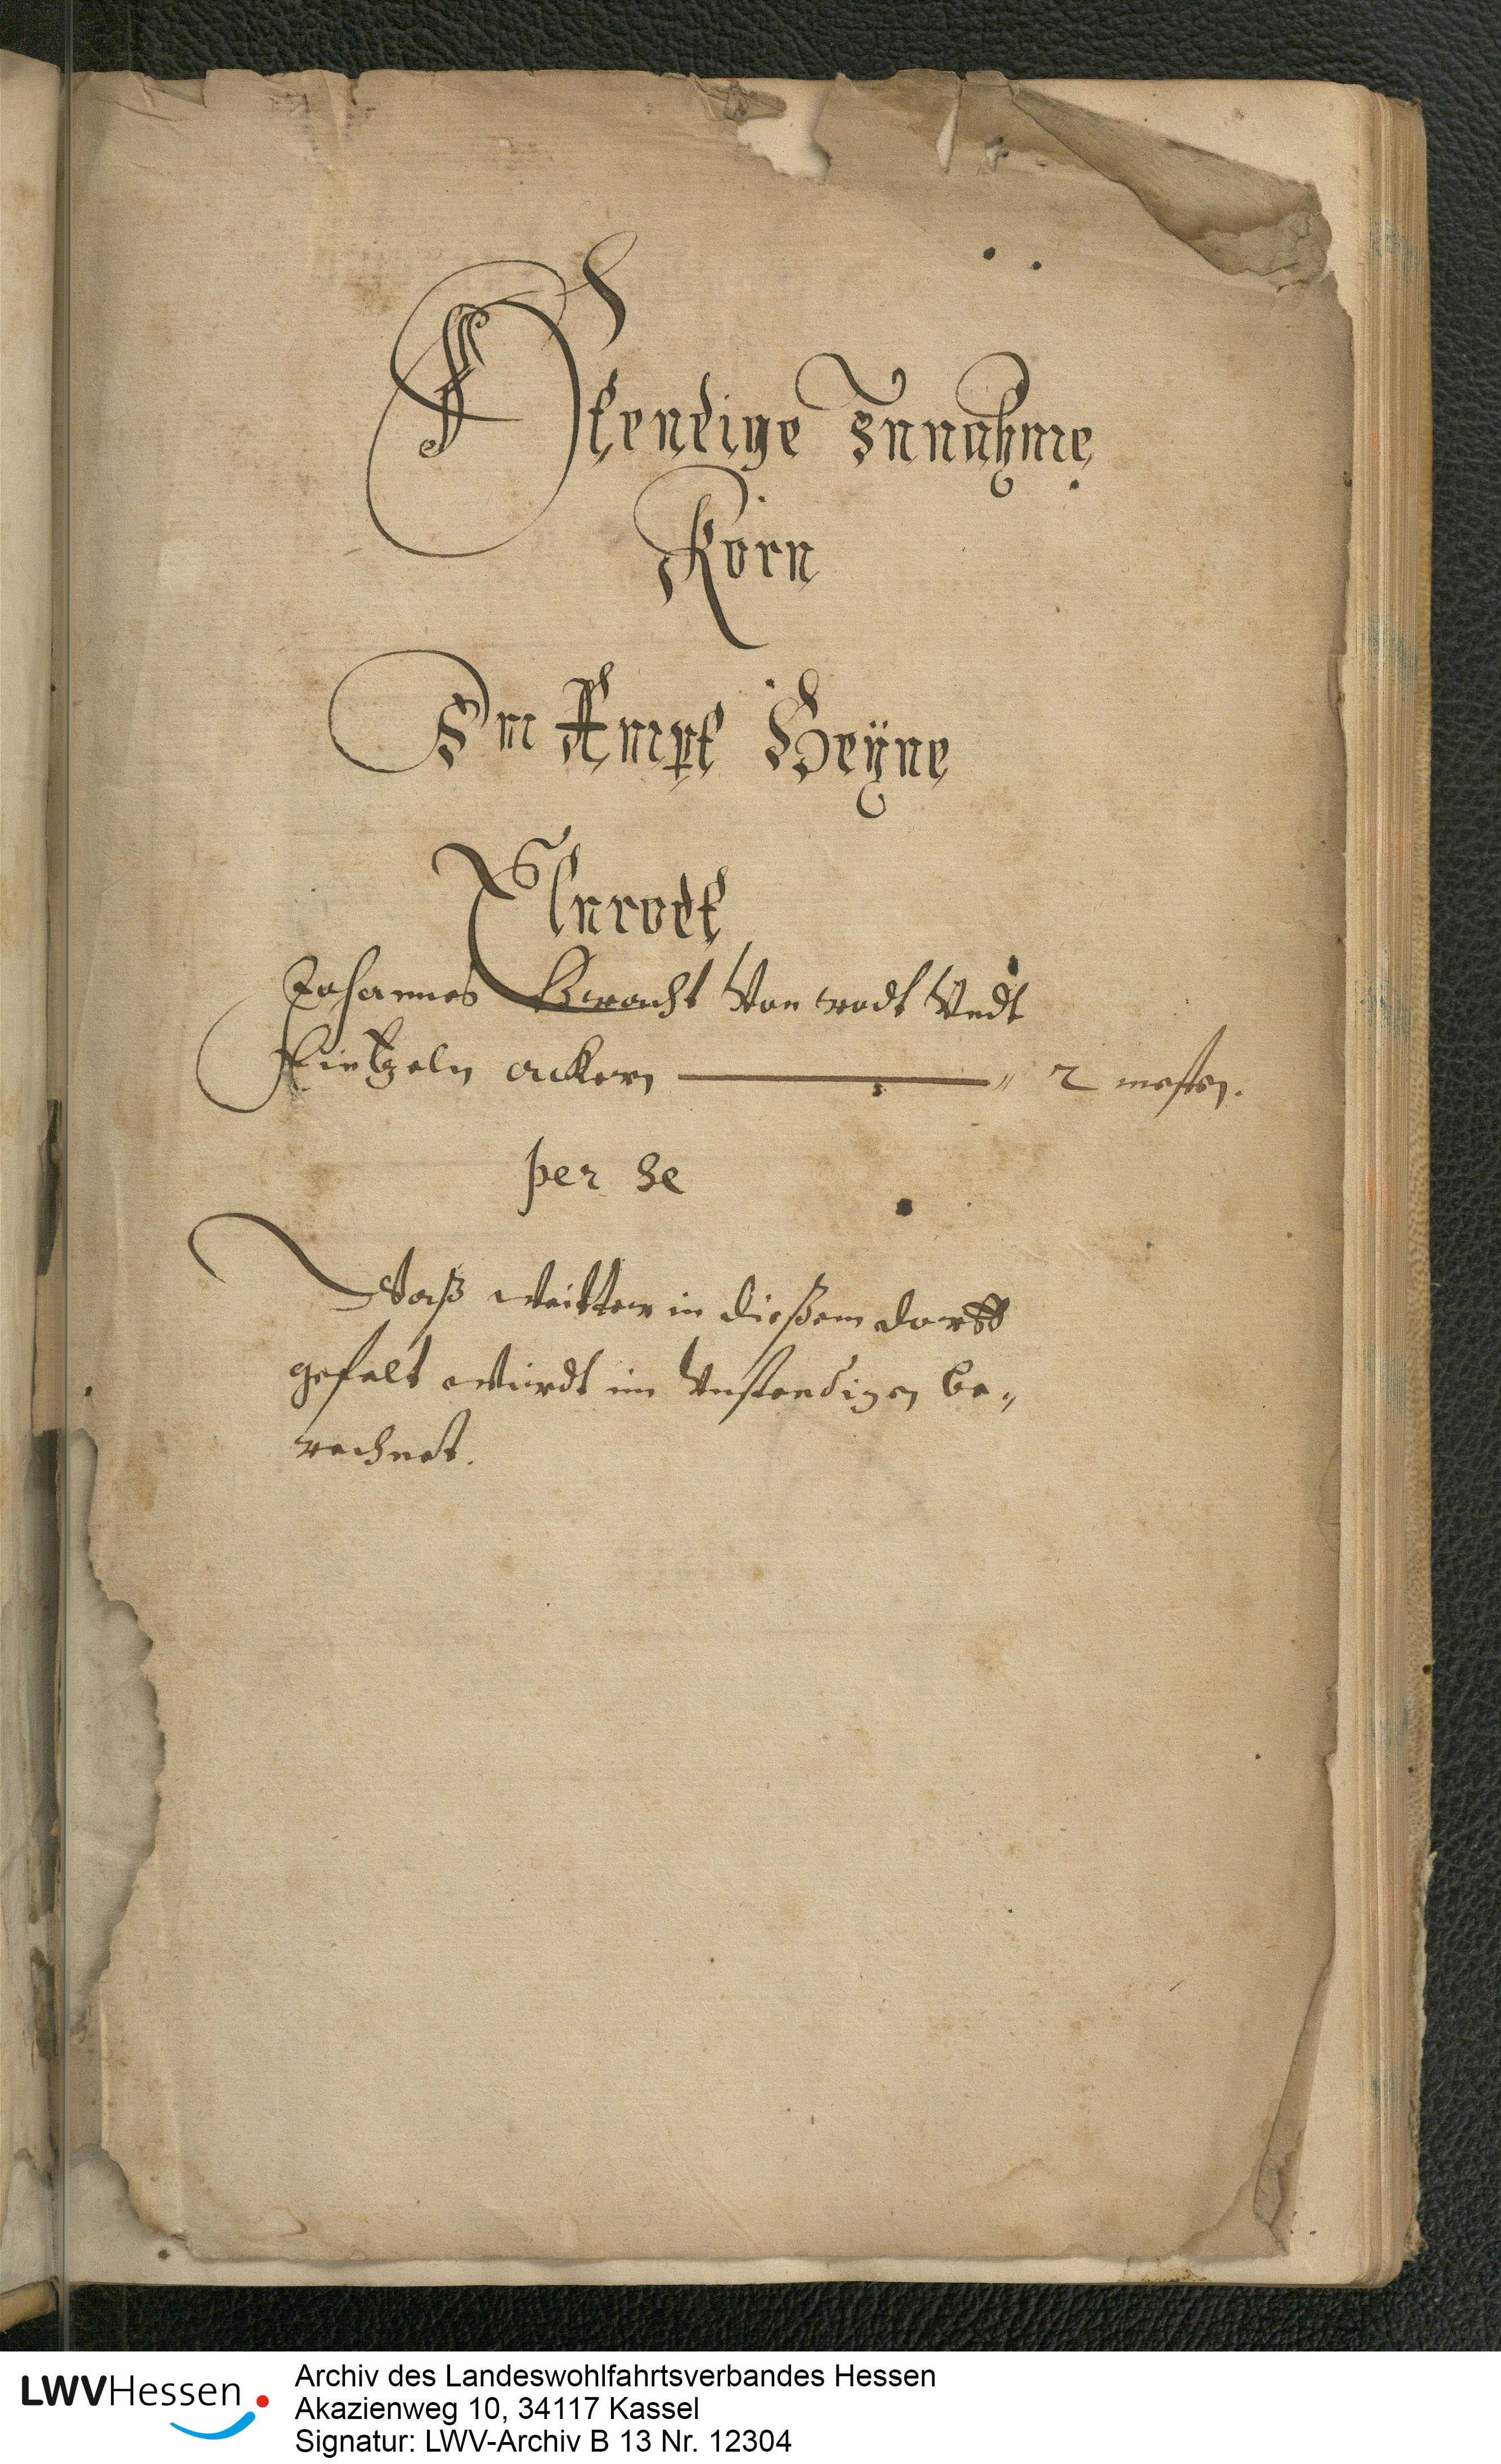 Stendige Innahme
Korn
Im Ampt Heÿne
Elnrodt
Johannes Bracht Von rodt Undt
ackern 2 mesten.
per se
Waß weitter in dießem dorff
gefelt würdt im Unstendigen be„
rechnet.
LWVHessen
Archiv des Landeswohlfahrtsverbandes Hessen
Akazienweg 10, 34117 Kassel
Signatur: LWV-Archiv B 13 Nr. 12304